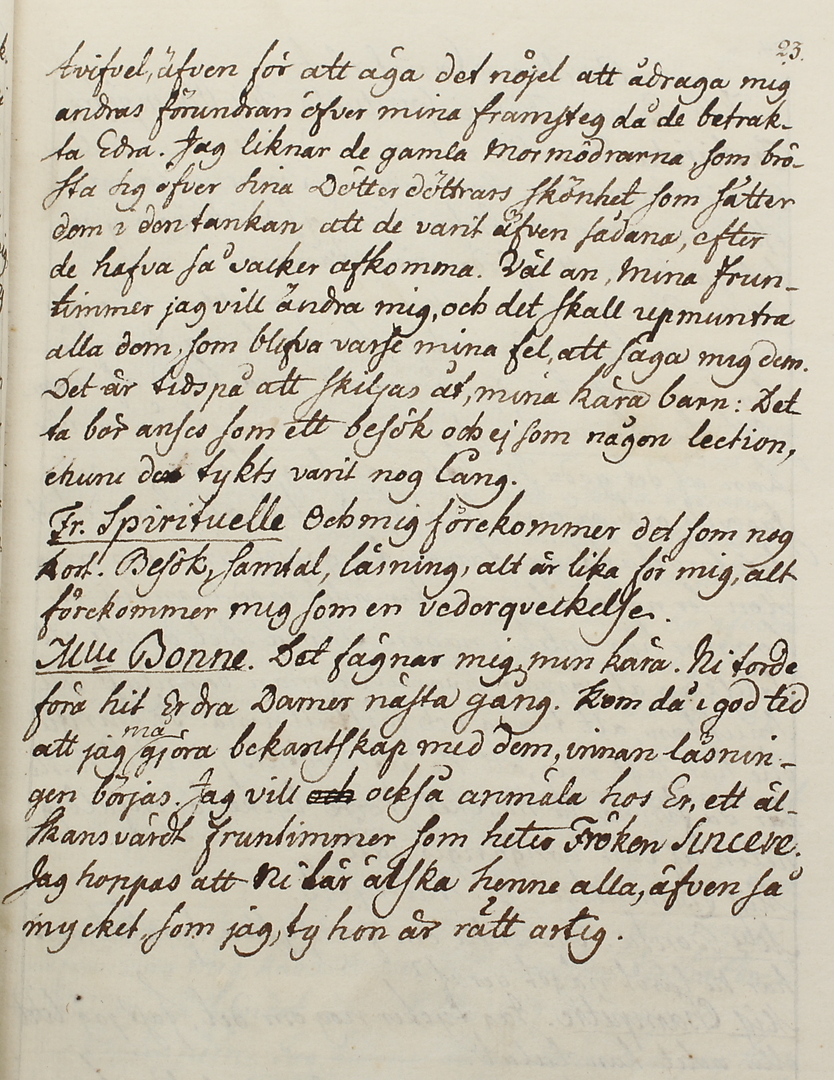 23.
tvifvel, äfven för att äga det nöjet att ådraga mig
andras förundran öfver mina framsteg då de betrak-
ta Edra. Jag liknar de gamla Mormödrarna, som brö-
sta sig öfver sina Dötterdöttrars skönhet som sätter
dem i den tankan att de varit äfven sådana, efter
de hafva så vacker afkomma. Väl an, Mina Frun-
timmer jag vill ändra mig, och det skall upmuntra
alla dom, som blifva varse mina fel, att säga mig dem.
Det är tids på att skiljas åt, mina kära barn: Det-
ta bör anses som ett besök och ej som någon lection,
ehuru den tykts varit nog lång.
Fr. Spirituelle Och mig förekommer det som nog
kort. Besök, samtal, läsning, alt är lika för mig, alt
förekommer mig som en vederqveckelse.
Mlle Bonne. Det fägnar mig, min kära. Ni torde
föra hit Erdra Damer nästa gång. Kom då i god tid
att jag må gjöra bekantskap med dem, innan läsnin-
gen börjas. Jag vill och också anmäla hos Er, ett äl-
skansvärdt fruntimmer som heter Fröken Sincere.
Jag hoppas att Ni lär älska henne alla, äfven så
mycket, som jag, ty hon är rätt artig.